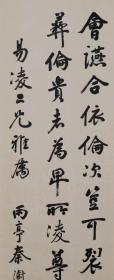 會讌合依倫次豈可裂
彝倫貴老為卑所凌尊
易凌二兄雅屬 丙亭秦澍